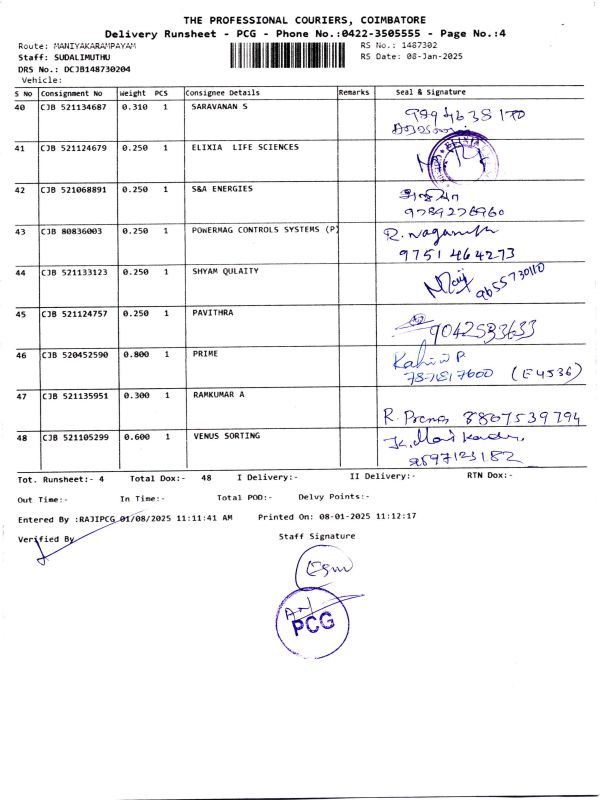 THE PROFESSIONAL COURIERS, COIMBATORE
Delivery Runsheet - PCG - Phone No.:0422-3505555 - Page No.:4
Route: MANIYAKARAMPAYAM RS No.: 1487302
Staff: SUDALIMUTHU RS Date: 08-Jan-2025
DRS No.: DCJB148730204
Vehicle:
S No Consignment No Weight PCS Consignee Details Remarks Seal & Signature
40 CJB 521134687 0.310 1 SARAVANAN S
41 CJB 521124679 0.250 1 ELIXIA LIFE SCIENCES
42 CJB 521068891 0.250 1 S&A ENERGIES
9789276960
43 CJB 80836003 0.250 1 POWERMAG CONTROLS SYSTEMS (P) R.
9751464273
44 CJB 521133123 0.250 1 SHYAM QULAITY
9655730110
45 CJB 521124757 0.250 1 PAVITHRA
9042533633
46 CJB 520452590 0.800 1 PRIME
(E4536)
47 CJB 521135951 0.300 1 RAMKUMAR A
R. 8807539794
48 CJB 521105299 0.600 1 VENUS SORTING
Tot. Runsheet:- 4 Total Dox:- 48 I Delivery:- II Delivery:- RTN Dox:-
Out Time:- In Time:- Total POD:- Delvy Points:-
Entered By :RAJIPCG 01/08/2025 11:11:41 AM Printed On: 08-01-2025 11:12:17
Verified By Staff Signature
PCG